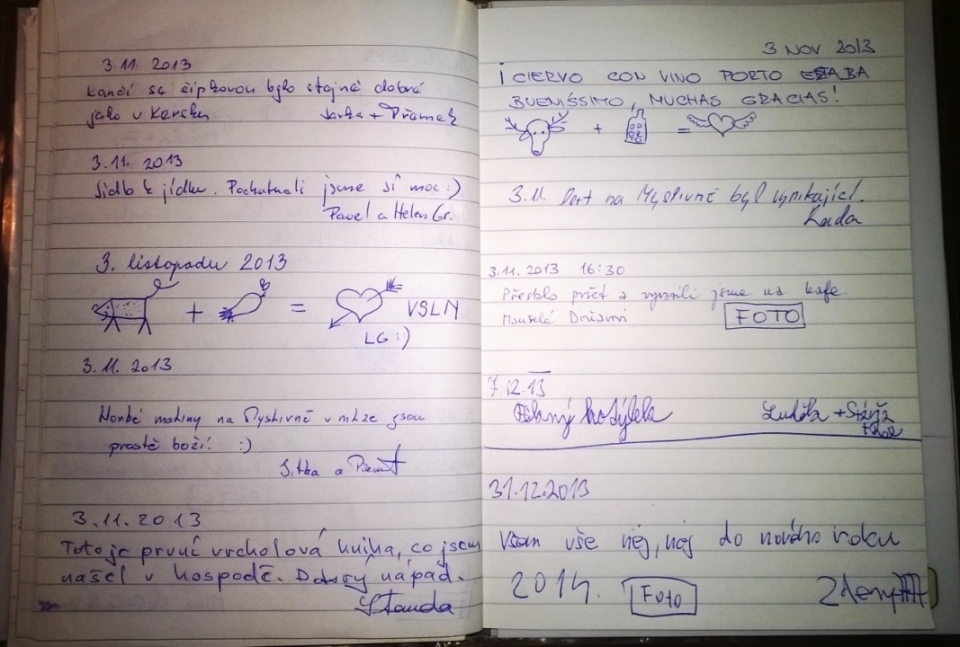 3.11. 2013
kančí se šípkovou bylo stejně dobré
jako v Kersku
Jarka + Přemek
3.11. 2013
Jídlo k jídlu. Pochutnali jsme si moc :)
Pavel a Helen Gr.
3. listopadu 2013
+ = VSLN
LG :)
3.11. 2013
Horké maliny na Myslivně v mlze jsou
prostě boží! :)
Jitka a
3.11.2013
Toto je první vrcholová kniha, co jsem
našel v hospodě. Dobrý nápad.
Standa
3 NOV 2013
¡ CIERVO CON VINO PORTO ESTABA
BUENÍSSIMO, MUCHAS GRACIAS!
+ =
3.11. Dort na Myslivně byl vynikající.
Lada
3.11.2013 16:30
Přestalo pršet a vyrazili jsme na kafe.
Manželé
FOTO
7.12.13
Luďka +
31.12.2013
Všem vše nej, nej do nového roku
2014.
FOTO